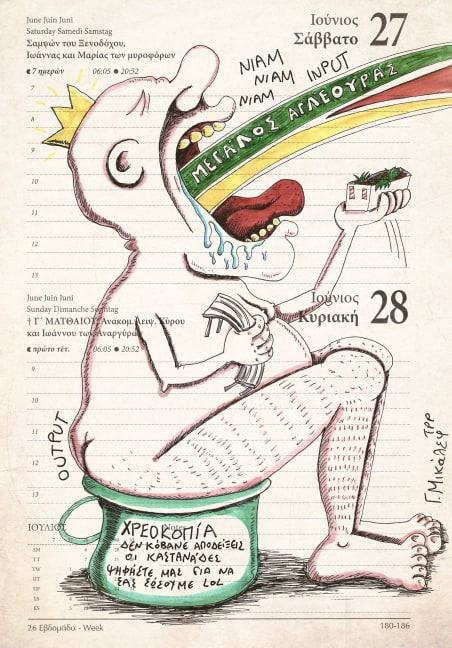 June Juin Juni
Saturday Samedi Samstag
Σαμψών του Ξενοδόχου,
Ιωάννας και Μαρίας των μυροφόρων
7 ημερών 06:05 ● 20:52
Ιούνιος
Σάββατο 27
ΝΙΑΜ
ΝΙΑΜ INPUT
ΝΙΑΜ
ΜΕΓΑΛΟΣ ΑΓΛΕΟΥΡΑΣ
7
8
9
10
11
12
13
June Juin Juni
Sunday Dimanche Sonntag
† Γ΄ ΜΑΤΘΑΙΟΥ, Ανακομ. Λειψ. Κύρου
και Ιωάννου των Αναργύρων
πρώτο τέτ. 06:05 ● 20:52
Ιούνιος
Κυριακή 28
9
10
11
12
13
OUTPUT
ΙΟΥΛΙΟΣ
ΧΡΕΟΚΟΠΙΑ
ΔΕΝ ΚΟΒΑΝΕ ΑΠΟΔΕΙΞΕΙΣ
ΟΙ ΚΑΣΤΑΝΑΔΕΣ
ΨΗΦΗΣΤΕ ΜΑΣ ΓΙΑ ΝΑ
ΣΑΣ ΣΩΣΟΥΜΕ LOL
Γ. Μικαλεφ
ΤΡΡ
26 Εβδομάδα - Week
180-186